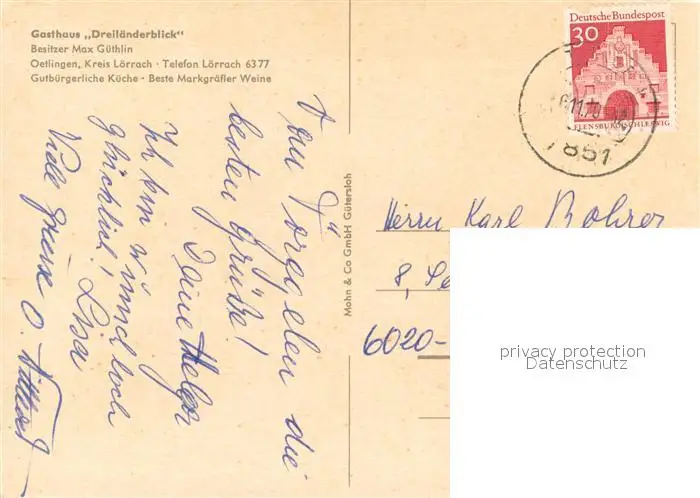 Gasthaus „Dreiländerblick"
Besitzer Max Güthlin
Oetlingen, Kreis Lörrach · Telefon Lörrach 6377
Gutbürgerliche Küche · Beste Markgräfler Weine
Deutsche Bundespost
30
FLENSBURG/SCHLESWIG
11.70
7851
die
besten Grüße!
Deine Helga
Ich bin wunschlos
glücklich! Lisa
Viele Grüsse O.
Mohn & Co GmbH Gütersloh
Herrn Karl Bohrer
8,
6020-
privacy protection
Datenschutz